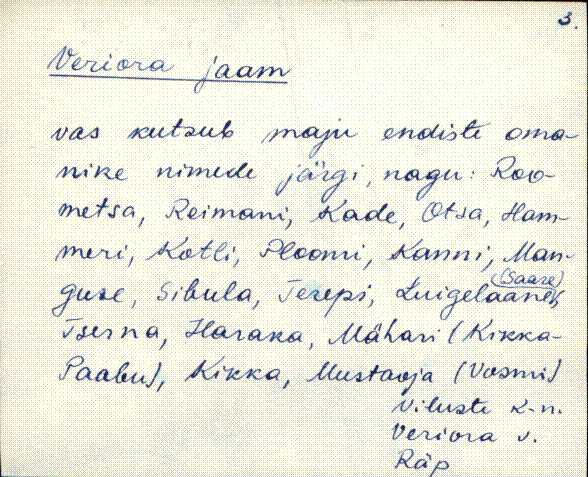 3.
Veriora jaam
vas kutsub maju endiste oma-
nike nimede järgi, nagu: Roo-
metsa, Reimani, Kade, Otsa, Ham-
meri, Kotli, Ploomi, Kanni, Man-
(Saare)
guse, Sibula, Terepi, Luigelaane,
Tserna, Haraka, Mähari (Kikka-
Paabu), Kikka, Mustaoja (Vosmi)
Viluste k-n.
Veriora v.
Räp